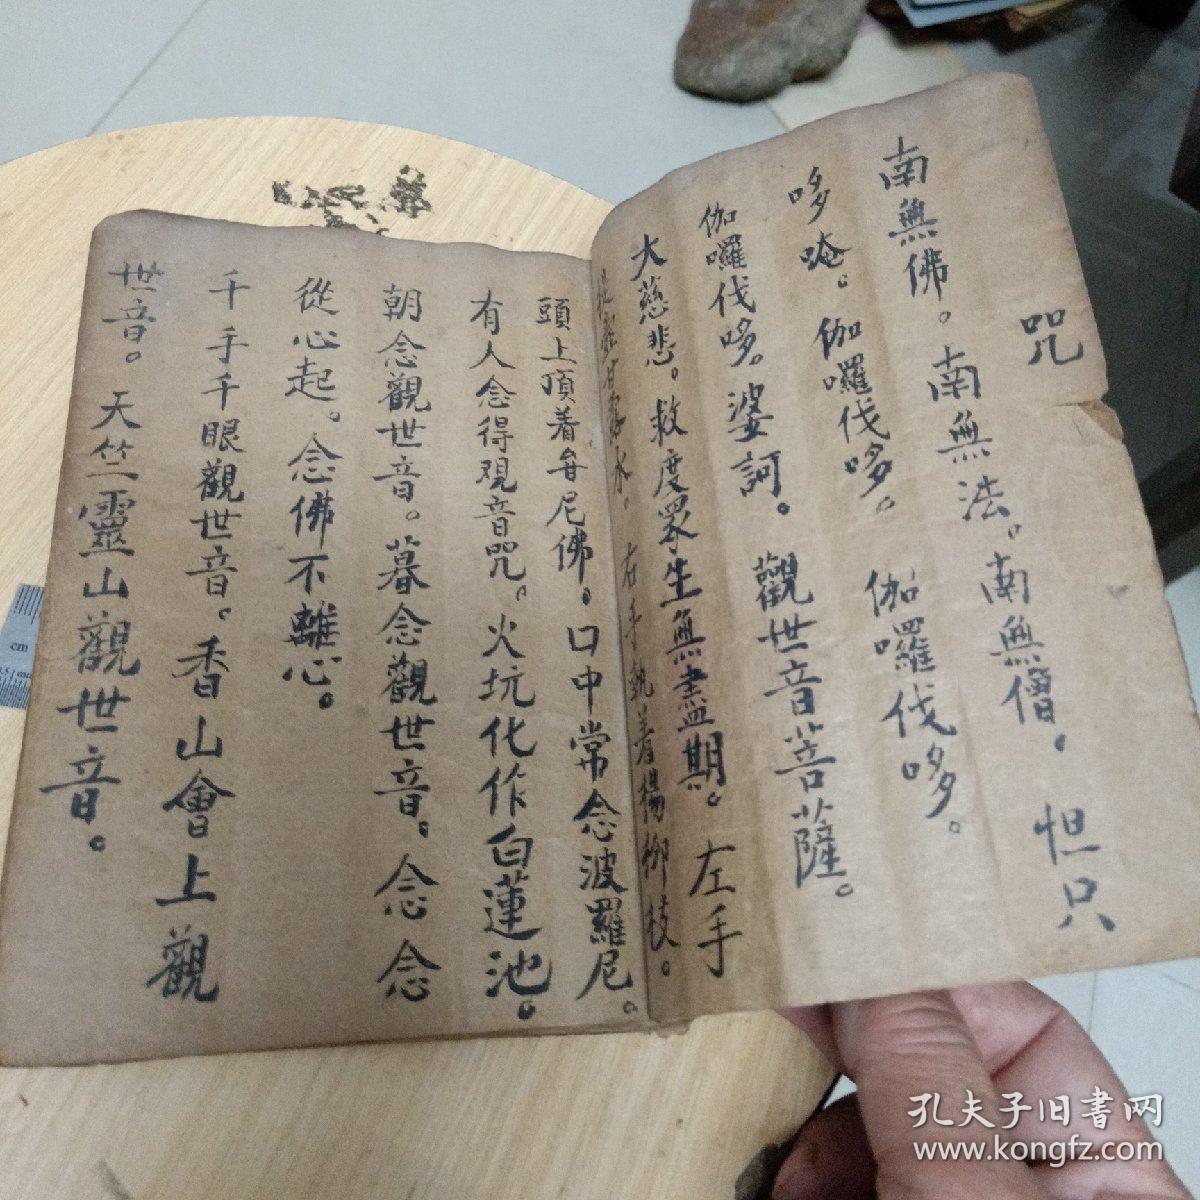 咒
南無佛。南無法。南無僧。怛只
哆唵。伽囉伐哆。伽囉伐哆。
伽囉伐哆。婆訶。觀世音菩薩。
大慈悲。救度眾生無盡期。左手
甘露水。右手執着楊柳枝。
頭上頂着弁尼佛。口中常念波羅尼。
有人念得观音咒。火坑化作白蓮池。
朝念觀世音。暮念觀世音。念念
從心起。念佛不離心。
千手千眼觀世音。香山會上觀
世音。天竺靈山觀世音。
cm
孔夫子旧书网
www.kongfz.com